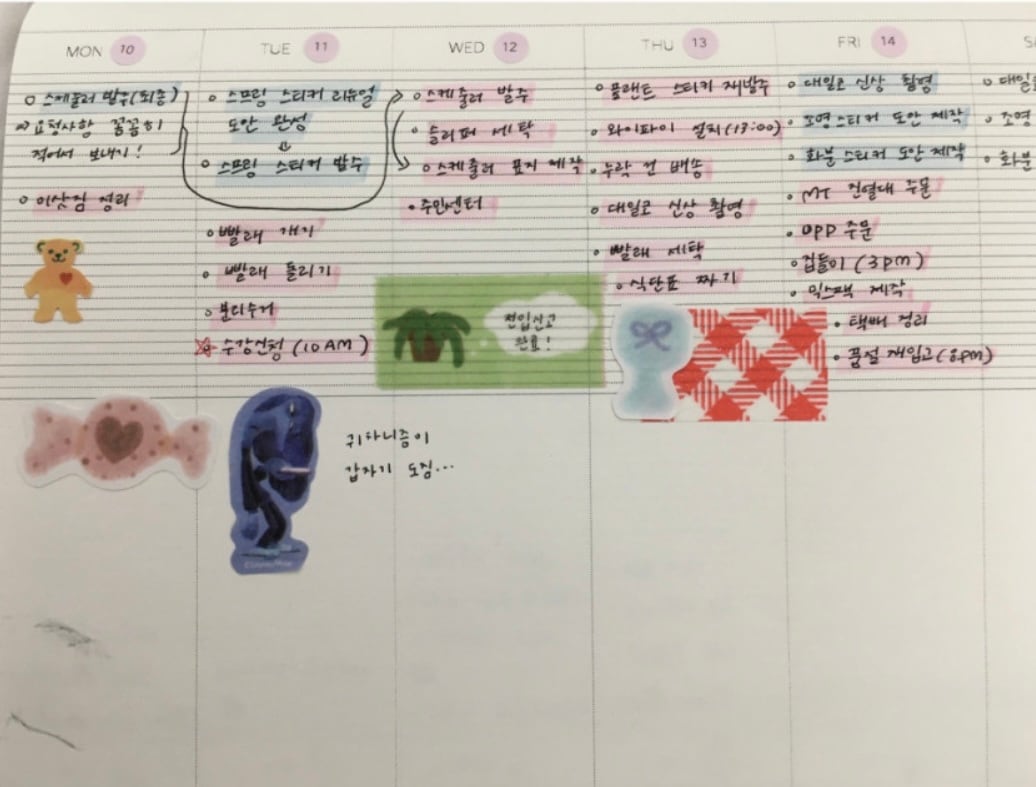 MON 10
○ 스케줄러 발주(최종)
⇒ 요청사항 꼼꼼히
적어서 보내기!
○ 이삿짐 정리
TUE 11
○ 스프링 스티커 리뉴얼
도안 완성
↓
○ 스프링 스티커 발주
○ 빨래 개기
○ 빨래 돌리기
○ 분리수거
☆ 수강신청 (10AM)
귀차니즘이
갑자기 도짐...
WED 12
○ 스케줄러 발주
○ 슬리퍼 세탁
○ 스케줄러 표지 제작
○ 주민센터
전입신고
완료!
THU 13
○ 플랜트 스티커 재발주
○ 와이파이 설치(13:00)
○ 누락 건 배송
○ 대일로 신상 촬영
○ 빨래 세탁
○ 식단표 짜기
FRI 14
○ 대일로 신상 촬영
○ 조명 스티커 도안 제작
○ 화분 스티커 도안 제작
○ MT 진열대 주문
○ OPP 주문
○ 집들이 (3pm)
○ 믹스팩 제작
○ 택배 정리
○ 품절 재입고(8pm)
○ 조명
○ 화분